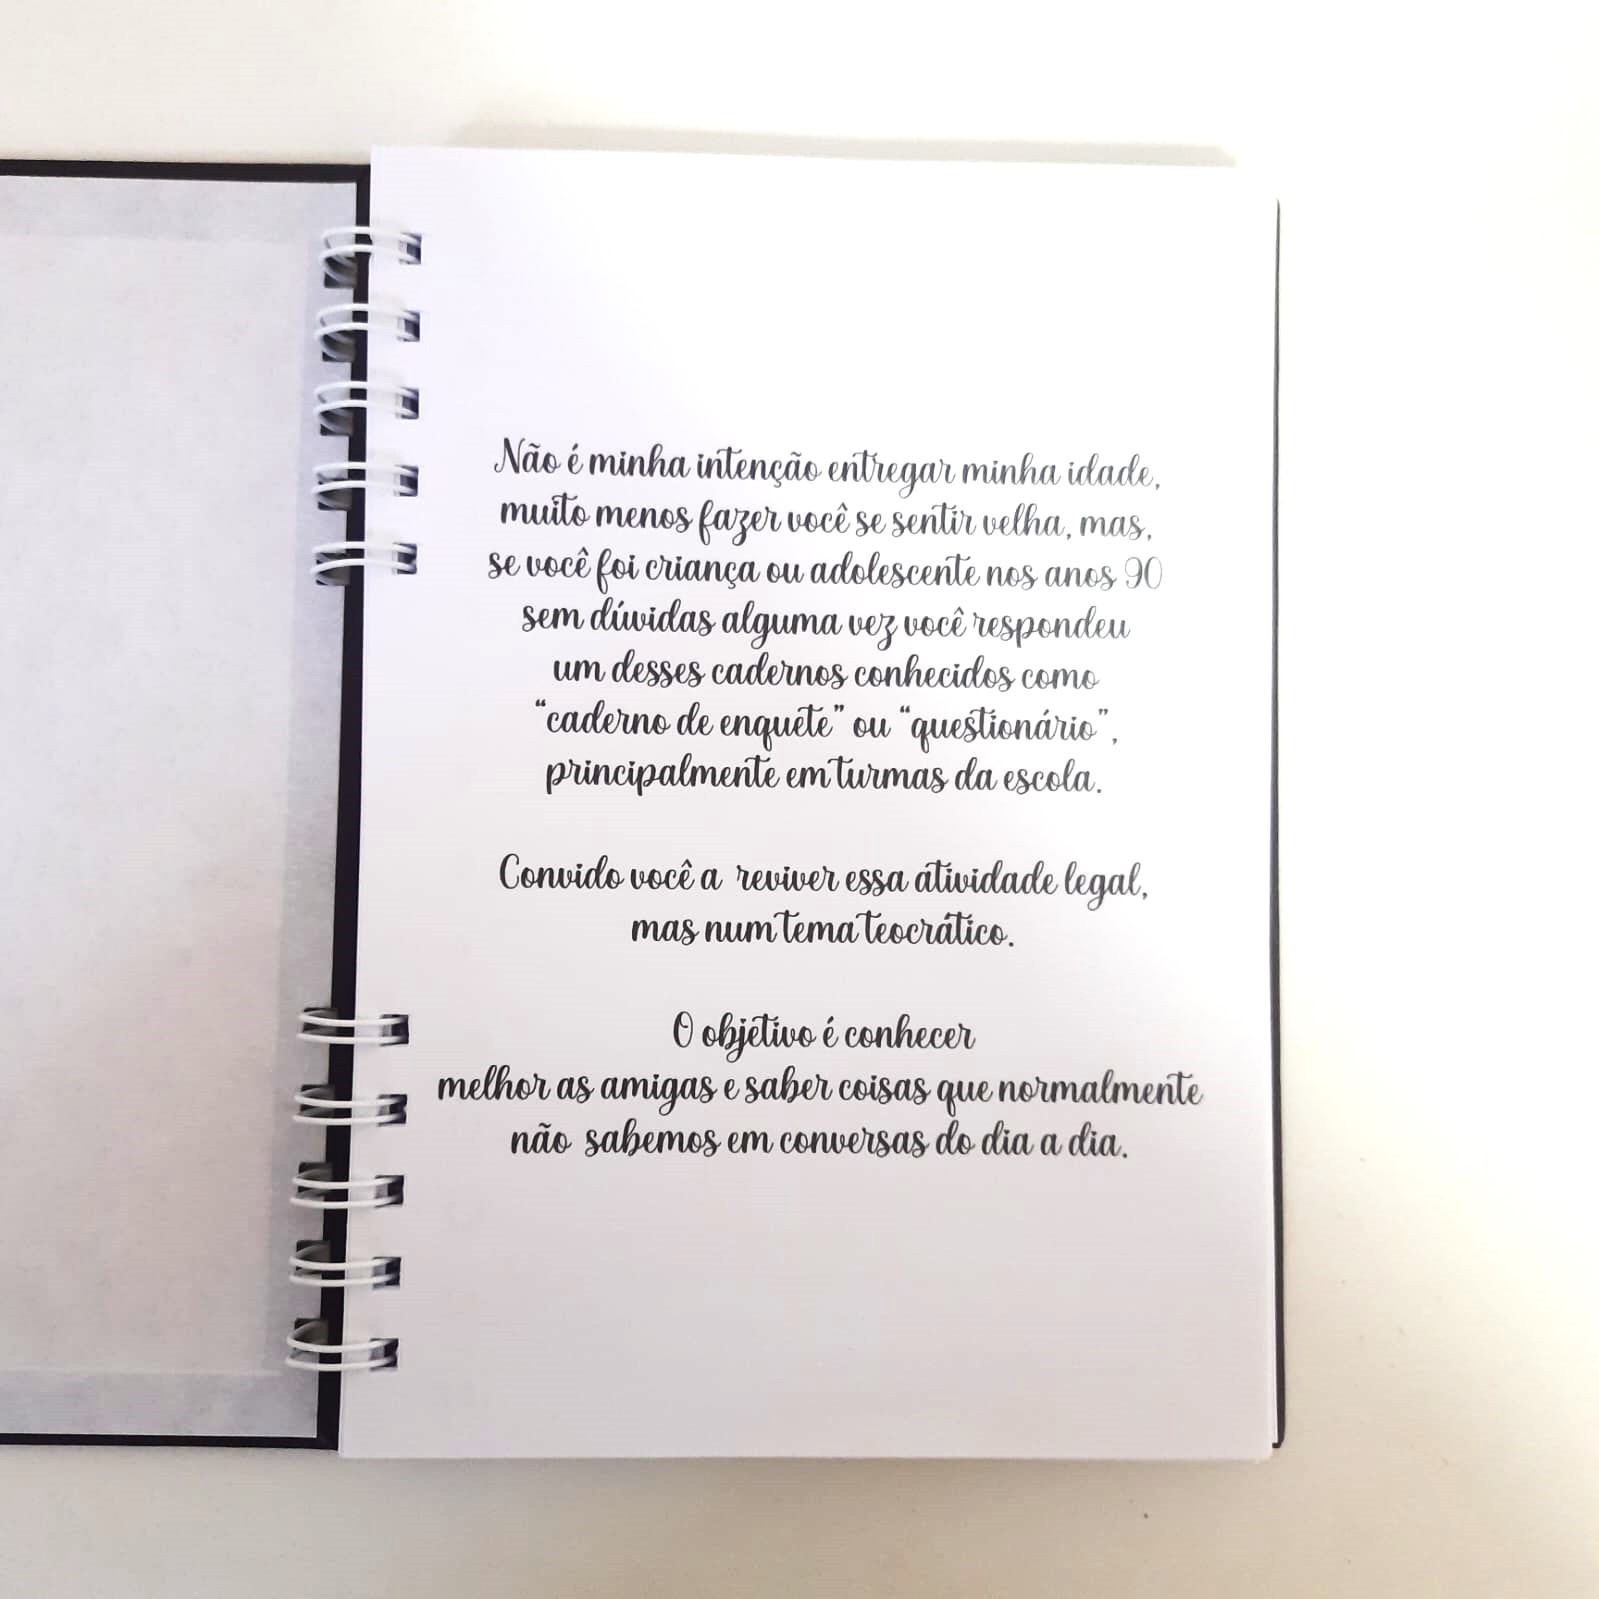 Não é minha intenção entregar minha idade,
muito menos fazer você se sentir velha, mas,
se você foi criança ou adolescente nos anos 90
sem dúvidas alguma vez você respondeu
um desses cadernos conhecidos como
“caderno de enquete” ou “questionário”,
principalmente em turmas da escola.
Convido você a reviver essa atividade legal,
mas num tema teocrático.
O objetivo é conhecer
melhor as amigas e saber coisas que normalmente
não sabemos em conversas do dia a dia.